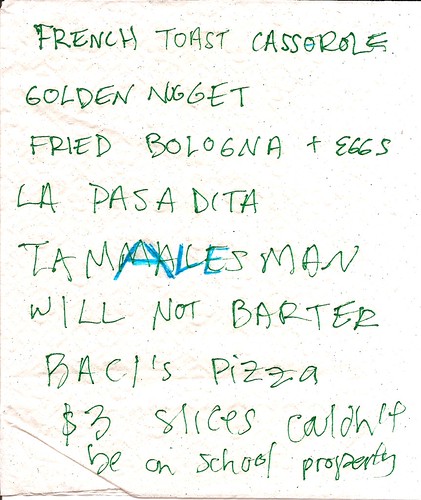 FRENCH TOAST CASSOROLE
GOLDEN NUGGET
FRIED BOLOGNA + EGGS
LA PASADITA
TAMALES MAN
WILL NOT BARTER
BACI'S PIZZA
$3 slices couldn't
be on school property